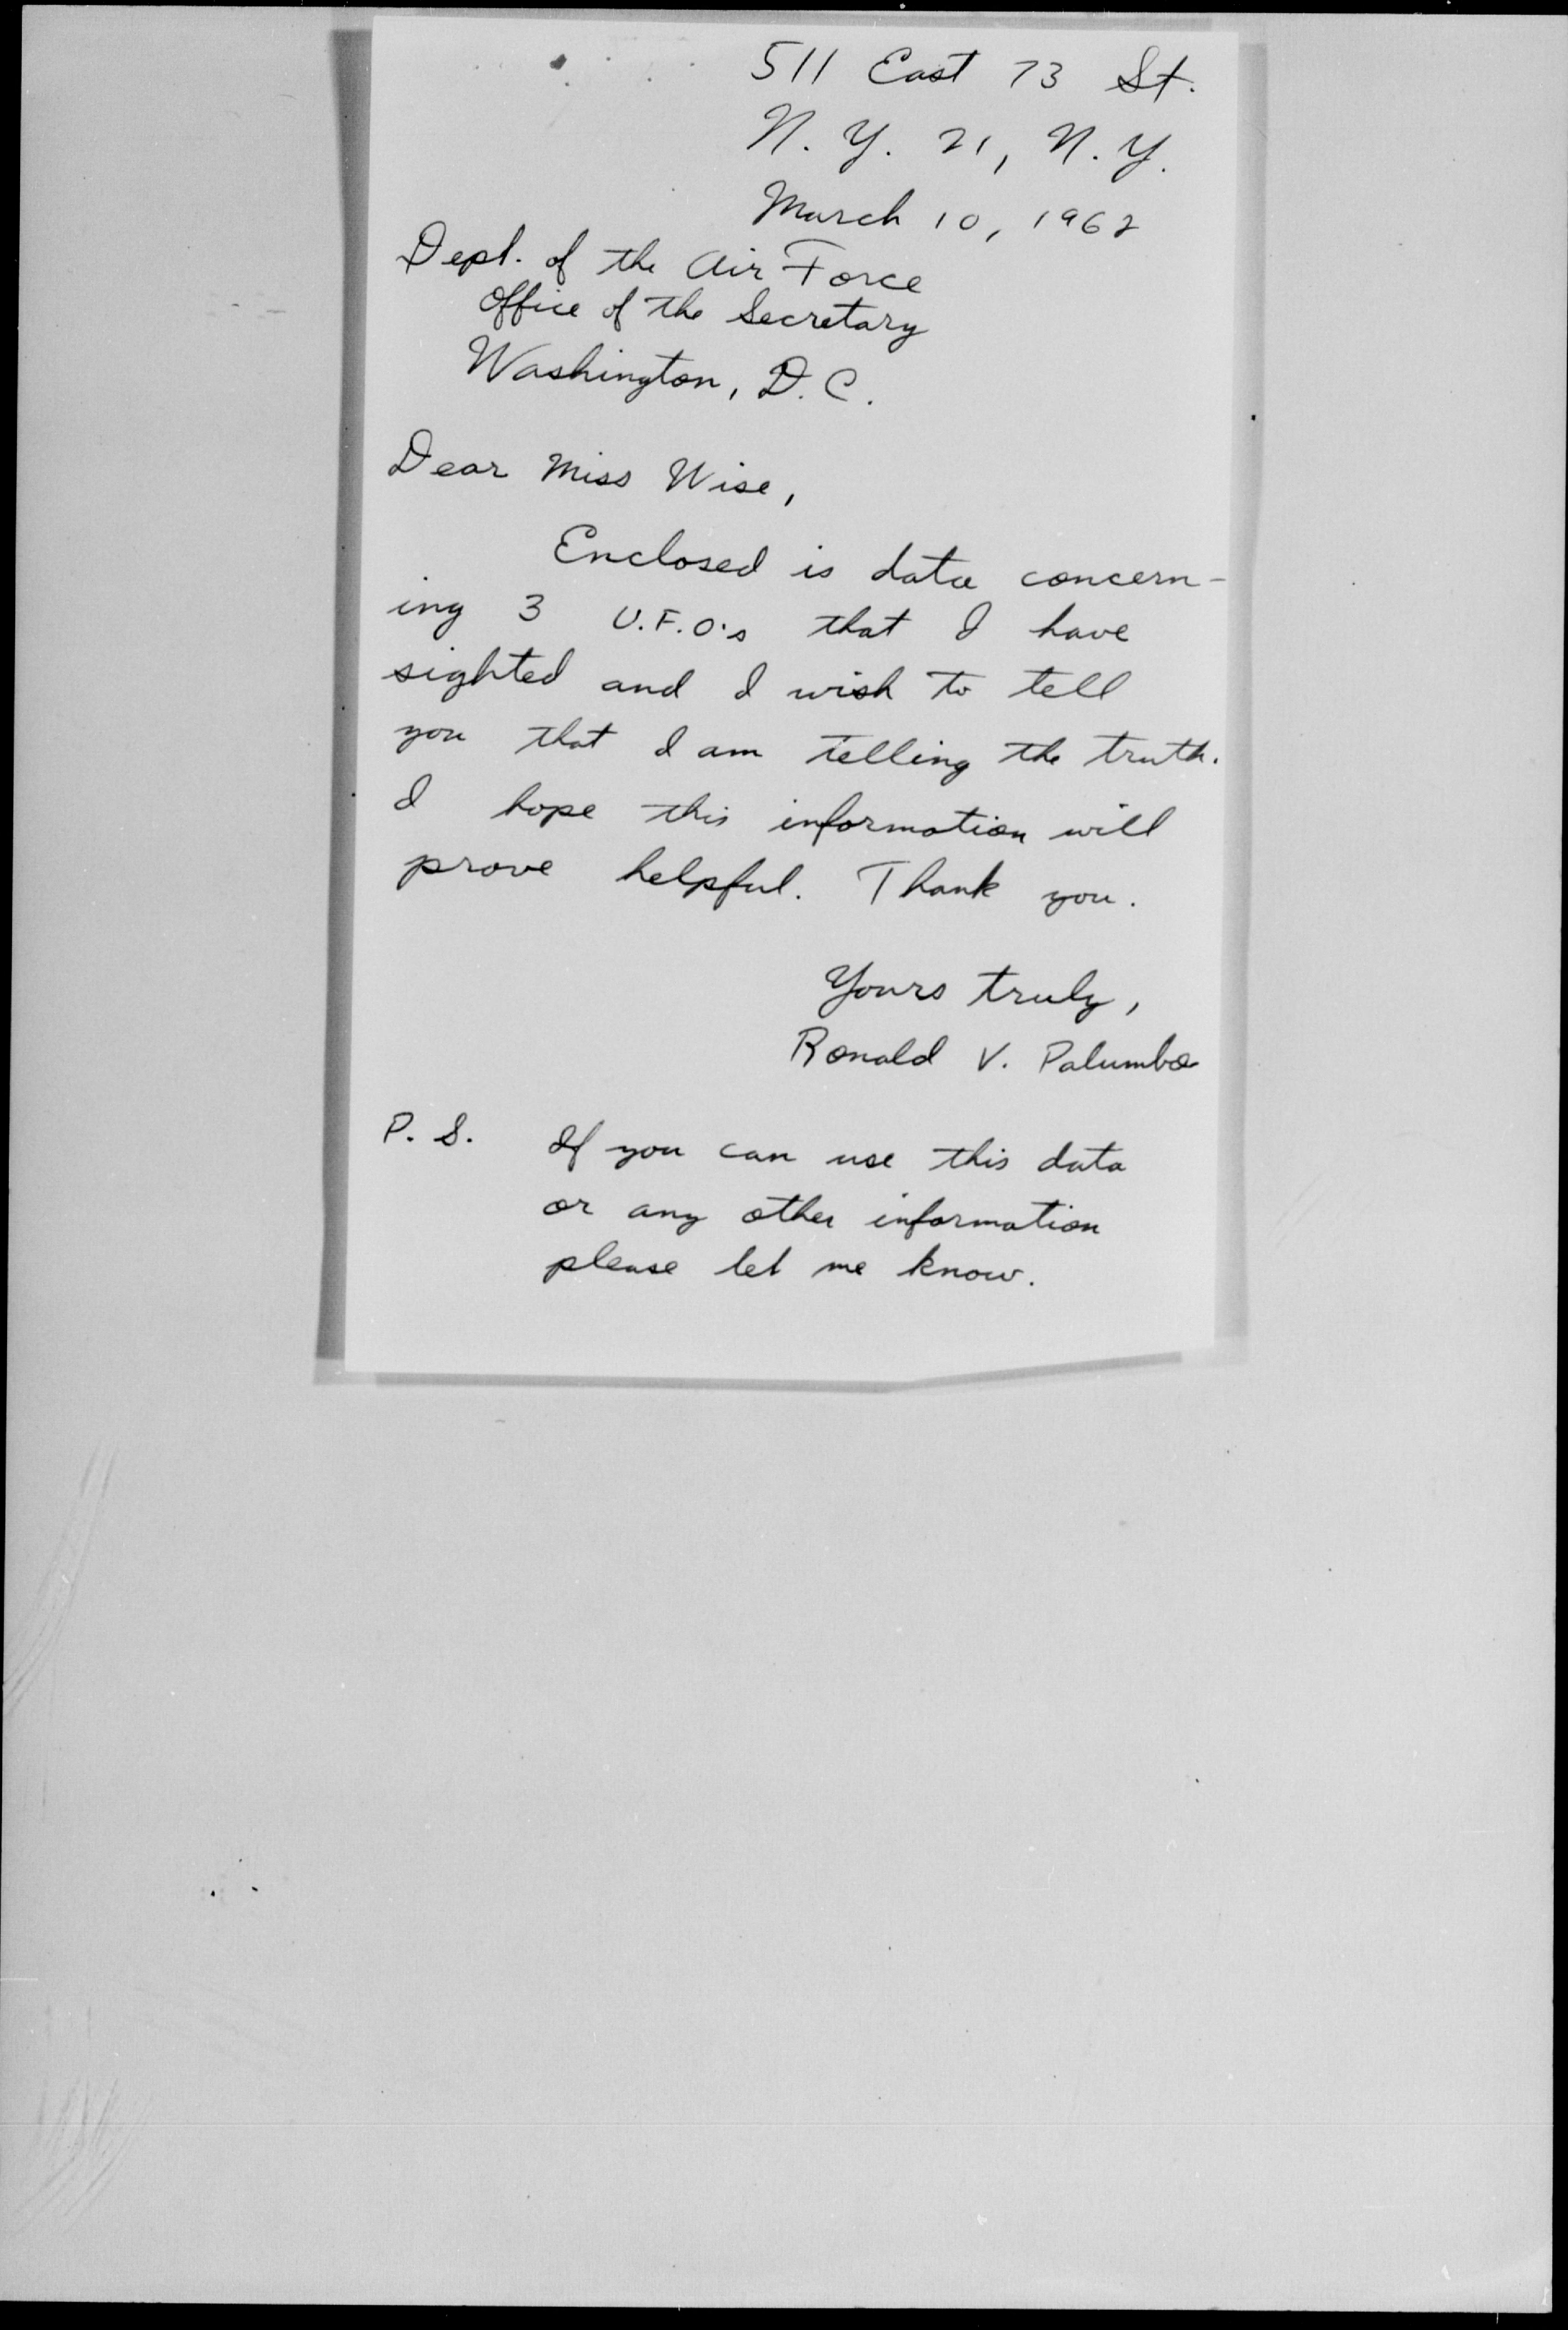 511 East 73 St.
N. Y. 21, N. Y.
March 10, 1962
Dept. of the Air Force
Office of the Secretary
Washington, D. C.
Dear Miss Wise,
Enclosed is data concern-
ing 3 U.F.O.'s that I have
sighted and I wish to tell
you that I am telling the truth.
I hope this information will
prove helpful. Thank you.
Yours truly,
Ronald V. Palumbo
P. S. If you can use this data
or any other information
please let me know.